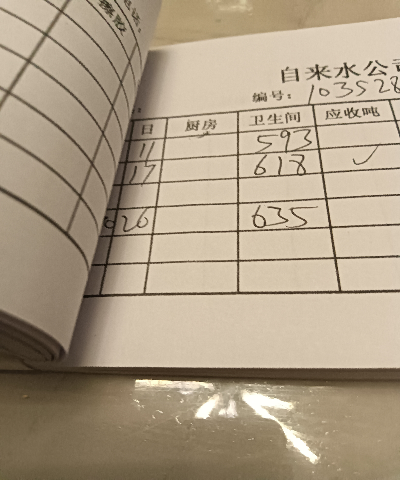 自来水公司
编号：103528
日 厨房 卫生间 应收吨
11 593
17 618 ✓
26 635